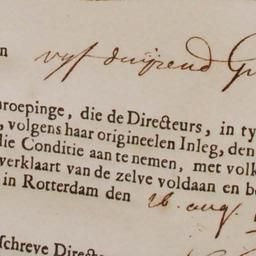 n vyf duijzend G
roepinge, die de Directeurs, in ty
, volgens haar origineelen Inleg, den
lie Conditie aan te nemen, met volk
verklaart van de zelve voldaan en b
in Rotterdam den 26. aug.
schreve Direct